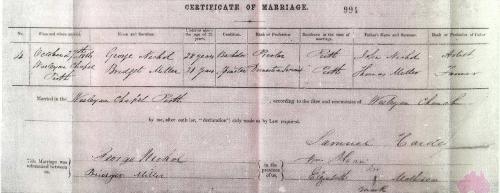 CERTIFICATE OF MARRIAGE.
994
No. When and where married. Name and Surname. Condition. Rank or Profession. Residence at the time of marriage. Father's Name and Surname. Rank or Profession of Father
4 October 27th George Nichol 28 years Bachelor Perth John Nichol Artist
Wesleyan Chapel Bridget Miller 21 years Spinster Domestic Servant Perth Thomas Miller Farmer
Perth
Married in the Wesleyan Chapel Perth, according to the rites and ceremonies of Wesleyan Church
by me, after oath (or, "declaration") duly made as by Law required.
Samuel
This Marriage was solemnized between us,
George Nichol
Bridget Miller
in the presence of us,
Elizabeth X Mathison
her
mark